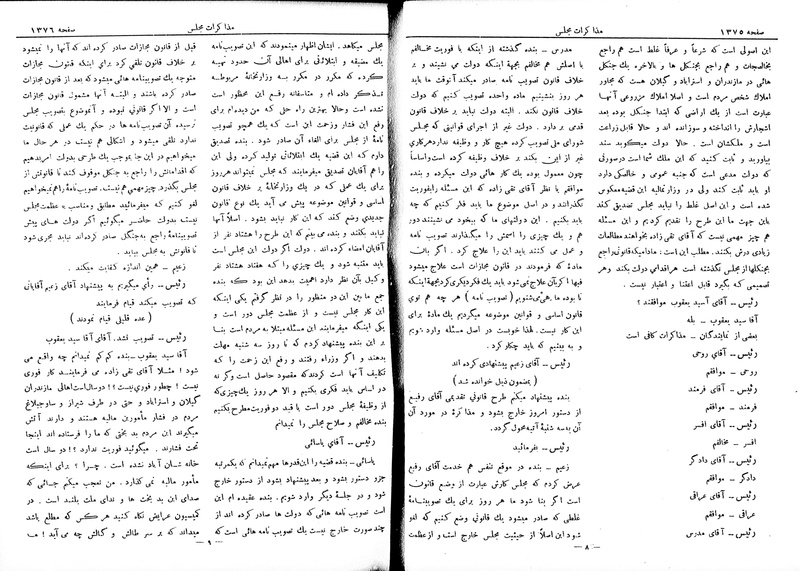 صفحه ۱۳۷۵
مذاکرات مجلس
این اصولی است که شرعاً و عرفاً غلط است هم راجع
بخالصجات و هم راجع بجنگلها و بالاخره یك جنگل
هائی در مازندران و استرآباد و گیلان هست که مجاور
املاك شخص مردم است و اصلا املاك مزروعی آنها
عبارت است از یك اراضی که ابتدا جنگل بوده بعد
اشجارش را انداخته و سوزانده اند و حالا قابل زراعت
است و ملکشان است . حالا دولت میگوید سند
بیاورید و ثابت کنید که این ملك شما است در صورتی
که دولت مدعی است که جنبه عمومی و خالصگی دارد
او باید ثابت کند ولی در وزارتمالیه این قضیه معکوس
شده است و این اصل غلط را نباید مجلس تصدیق کند
باین جهت ما این طرح را تقدیم کردیم و این مسئله
هم چیز مهمی نیست که آقای تقی زاده بخواهند مطالعات
زیادی درش بکنند. مطلب این است : مادامیکه قانونی راجع
بجنگلها از مجلس نگذشته است هر اقدامی دولت بکند و هر
تصمیمی که بگیرد قابل اعتنا و اعتبار نیست .
رئیس – آقای آسید یعقوب موافقند ؟
آقا سید یعقوب – بله
بعضی از نمایندگان – مذاکرات کافی است
رئیس – آقای روحی
روحی – موافقم
رئیس – آقای فرمند
فرمند – موافقم
رئیس – آقای افسر
افسر – مخالفم
رئیس – آقای دادگر
دادگر – موافقم
رئیس – آقای عراقی
عراقی – موافقم
رئیس – آقای مدرس
مدرس – بنده گذشته از اینکه با فوریت مخالفم
با اصلش هم مخالفم بجهة اینکه دولت می نشیند و بر
خلاف قانون تصویب نامه صادر میکند آنوقت ما باید
هر روز بنشینیم ماده واحده تصویب کنیم که دولت
خلاف قانون نکند . البته دولت نباید بر خلاف قانون
قدمی بر دارد . دولت غیر از اجرای قوانینی که مجلس
شورای ملی تصویب کرده هیچ کار و وظیفه ندارد هر کاری
غیر از این بکند بر خلاف وظیفه کرده است و اساساً
چون معمول بوده یك کار هائی دولت میکرده و بنده
موافقم با نظر آقای تقی زاده که این مسئله را بفوریت
نگذرانند و در اصل موضوع ما باید فکر کنیم که چه
باید بکنیم . این دولتهای ما که بیخود می نشینند دور
هم و یك چیزی را اسمش را میگذارند تصویب نامه
و عمل می کنند باید این را علاج کرد . اگر باین
مادهٔ که فرمودند در قانون مجازات است علاج میشود
فبها اگر بآن علاج نمی شود باید یك فکر دیگری کرد بجهة اینکه
تا بوده ما همی میشنویم ( تصویب نامه ) هر چه هم توی
قانون اساسی و قوانین موضوعه میگردیم یك مادهٔ برای
این کار نیست. لهذا خوبست در اصل مسئله وارد شویم
و به بینیم که باید چکار کرد .
رئیس – آقای زعیم پیشنهادی کرده اند
( بمضمون ذیل خوانده شد )
بنده پیشنهاد میکنم طرح قانونی تقدیمی آقای رفیع
از دستور امروز خارج بشود و مذاکره در مورد آن
به سه شنبهٔ آتیه محول گردد.
رئیس – بفرمائید
زعیم – بنده در موقع تنفس هم خدمت آقای رفیع
عرض کردم که مجلس کارش عبارت از وضع قانون
است اگر بنا شود ما هر روز برای یك تصویبنامهٔ
غلطی که صادر میشود یك قانونی وضع کنیم که لغو
شود این اصلا از حیثیت مجلس خارج است و از عظمت
– ۸ –
مذاکرات مجلس
صفحه ۱۳۷۶
مجلس میکاهد . ایشان اظهار مینمودند که این تصویب نامه
یك مضیقه و ابتلائی برای اهالی آن حدود تهیه
کرده که مکرر در مکرر به وزارتخانهٔ مربوطه
تذکر داده ام و متأسفانه رفع این محظور است
نشده است وحالا بهترین راه حلی که من دیده ام برای
رفع این فشار وزحمت این است که یك همچو تصویب
نامهٔ از مجلس برای الغاء آن صادر شود . بنده تصدیق
دارم که این قضیه یك ابتلائاتی تولید کرده ولی این
را هم آقایان تصدیق میفرمایند که مجلس نمیتواند هر روز
برای یك عملی که در یك وزارتخانهٔ بر خلاف قانون
اساسی و قوانین موضوعه پیش می آید یك نوع قانون
جدیدی وضع کند که این کار نباید بشود . اصلاً آنها
نباید بکنند و بنده می بینم که این طرح را هشتاد نفر از
آقایان امضاء کرده اند. دولت اگر دولت این مجلس است
باید متنبه شود و یك چیزی را که هفتاد هشتاد نفر
وکیل بآن نظر دارد اهمیت بدهد این بود که بنده
جمع ما بین این دو منظور را در نظر گرفتم یکی اینکه
این کار مجلس نیست و از عظمت مجلس دور است و
یکی اینکه میفرمایند این مسئله مبتلا به مردم است بنا
بر این بنده پیشنهاد کردم که تا روز سه شنبه مهلت
بدهند و اگر وزراء رفتند و رفع این زحمت را که
تکلیف آنها است کردند که مقصود حاصل است و گر نه
در اساس باید فکری بکنیم و الا هر روز یك چیزی که
از وظیفهٔ مجلس دور است با قید دو فوریت مطرح بکنیم
بنده مخالفم و صلاح مجلس را نمیدانم
رئیس – آقای یاسائی
یاسائی – بنده قضیه را این قدرها مهم نمیدانم که بکمرتبه
جزو دستور بشود و بعد پیشنهاد بشود از دستور خارج
شود و در جلسهٔ دیگر وارد شویم . بنده عقیده ام این
است تصویب نامه هائی که دولت ها صادر کرده اند از
چند صورت خارج نیست یك تصویب نامه هائی است که
قبل از قانون مجازات صادر کرده اند که آنها را نمیشود
بر خلاف قانون تلقی کرد برای اینکه قانون مجازات
متوجه یك تصویبنامه هائی میشود که بعد از آن قانون
صادر کرده باشند و البته آنها مشمول قانون مجازات
است و الا اگر قانونی نبوده و آنموقع بتصویب مجلس
نرسیده آن تصویب نامه ها در حکم یك عملی که قانونیت
ندارد تلقی میشود و اشکالی هم نیست در هر حال ما
میخواهیم در این جا بموجب یك طرحی بدولت امر بدهیم
که اقداماتش را راجع به جنگل موقوف کند تا قانونش از
مجلس بگذرد. چیز مهمی هم نیست. تصویب نامهٔ را هم نمیخواهیم
لغو کنیم که میفرمائید مطابق و مناسب با عظمت مجلس
نیست بدولت حاضر میگوئیم اگر دولت های پیش
تصویبنامهٔ راجع به جنگل صادر کرده اند نباید مجری شود
تا قانونش به مجلس بیاید .
زعیم – همین اندازه کفایت میکند .
رئیس – رأی میگیریم به پیشنهاد آقای زعیم آقایانی
که تصویب میکنند قیام فرمایند
( عده قلیلی قیام نمودند )
رئیس – تصویب نشد. آقای آسید یعقوب
آقا سید یعقوب – بنده کم کم نمیدانم چه واقع می
شود ! مثـلا آقای تقی زاده می فرمایند کار فوری
نیست ! چطور فوری نیست ؟ ؟ دو سال است اهالی مازندران
گیلان و استرآباد و حتی در طرف شیراز و ساوجبلاغ
مردم در فشار مأمورین مالیه هستند و دارند آتش
میگیرند این مردم بد بختی که ما را فرستاده اند اینجا
تحت فشارند . میگوئید فوریت ندارد ؟! دو سال است
خانه شان آباد نشده است . چـرا ؟ برای اینکه
مأمور مالیه نمی گذارد . من تعجب میکنم جسائی که
صدای این بد بخت ها و ندای ملت بلند است . در
کمیسیون عرایض نگاه کنید هر کس که مطلع باشد
میداند که بر سر طالش و گالش چه می آید ! ما
– ۹ –